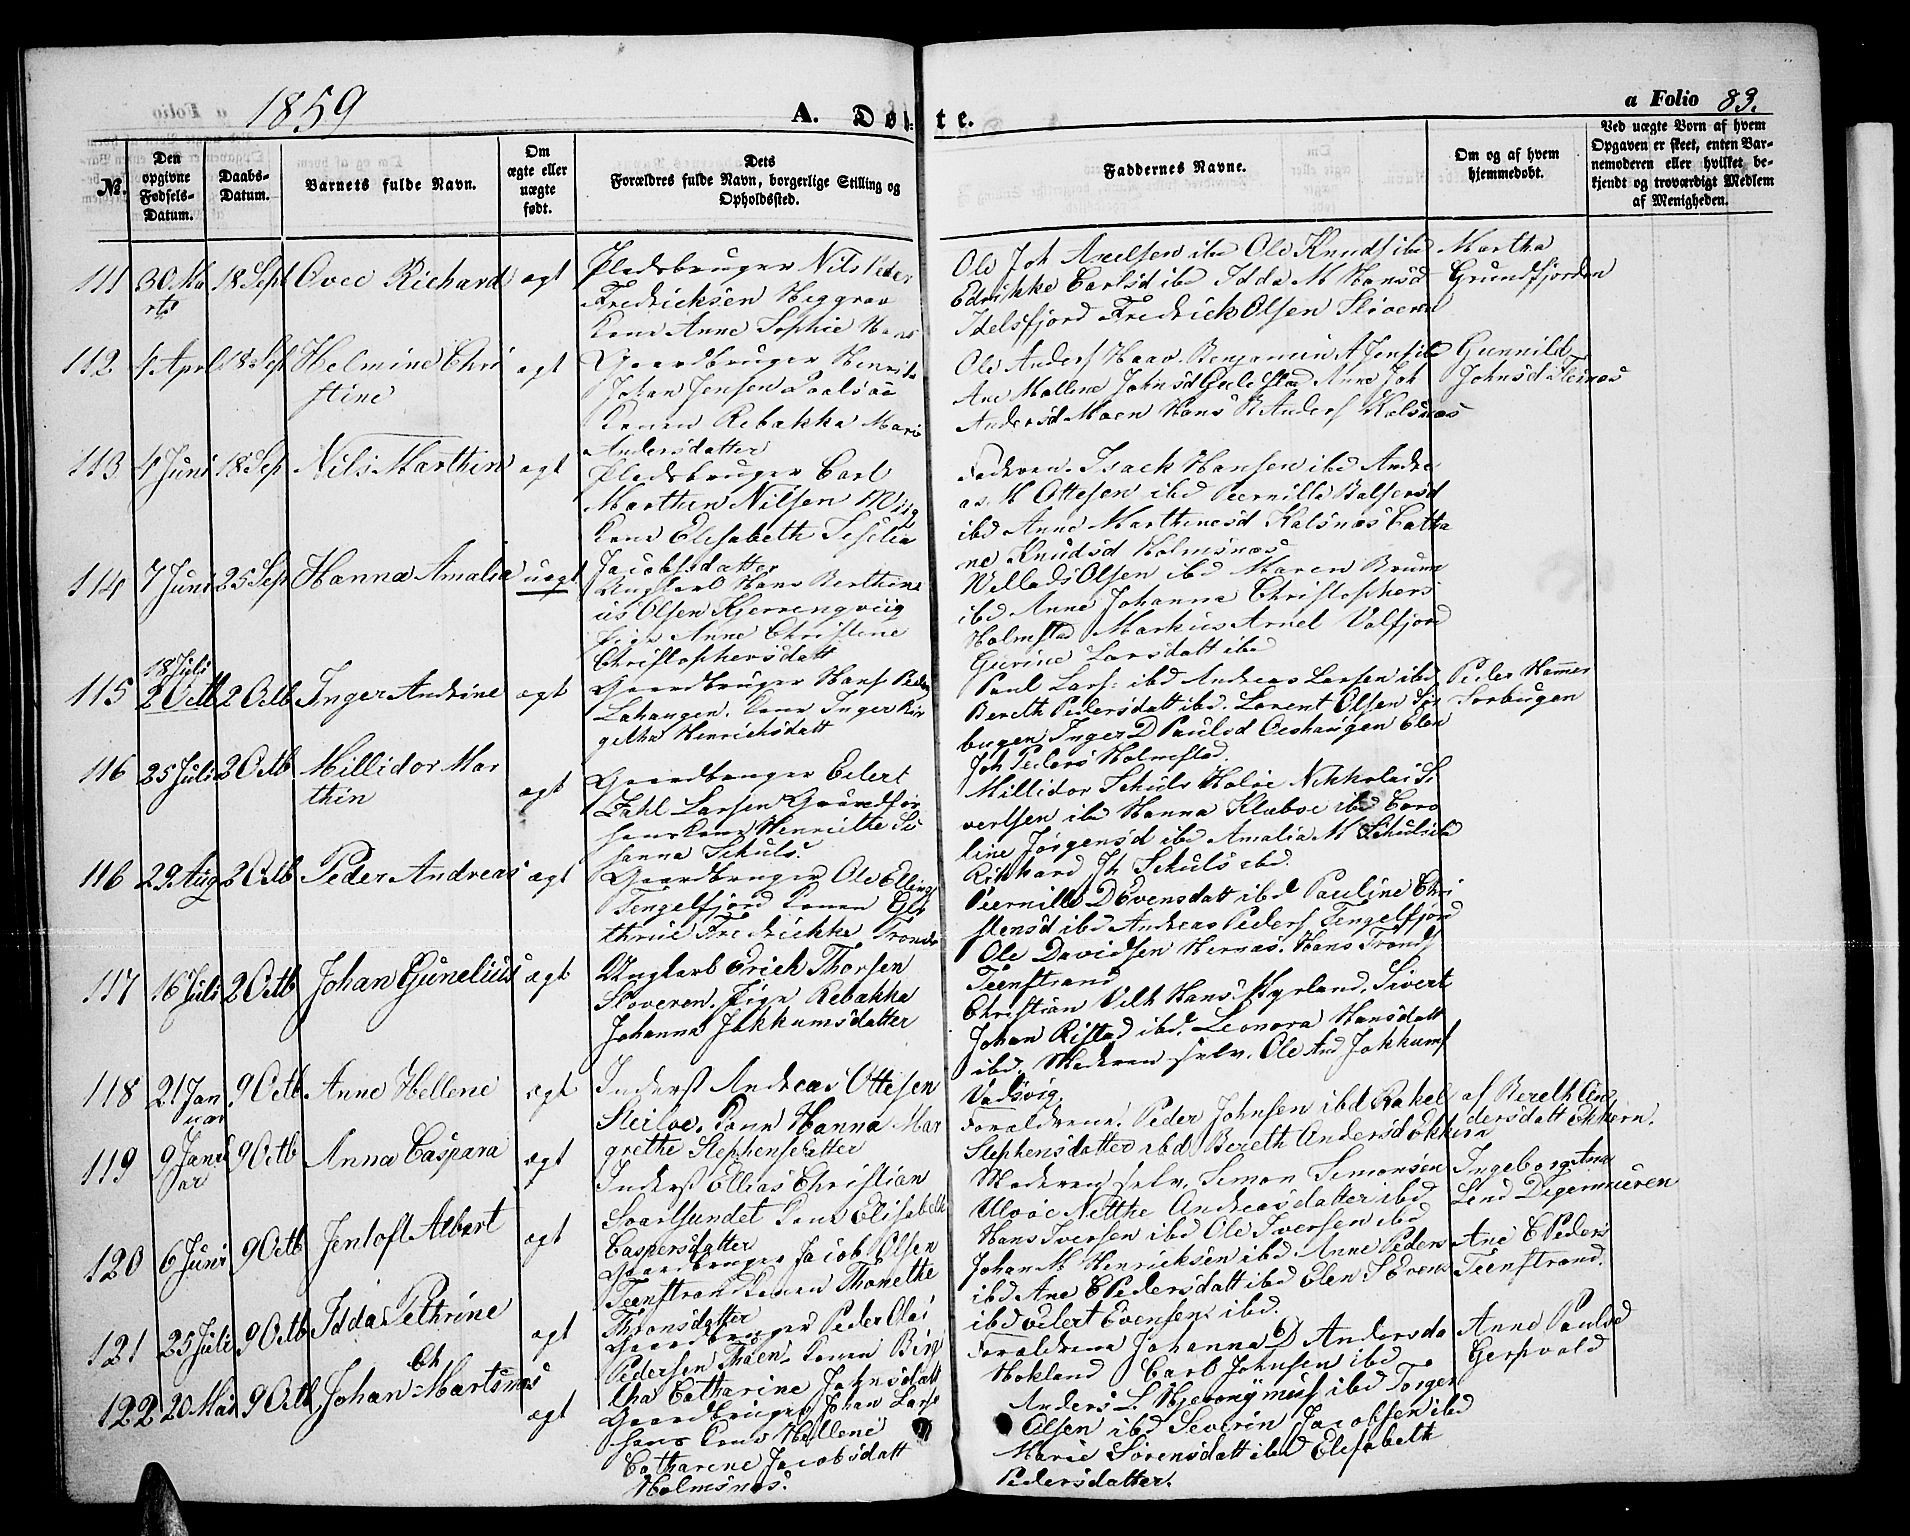 1859
A. Døbte.
a Folio 83.
No.
Den opgivne Fødsels-Datum.
Daabs-Datum.
Barnets fulde Navn.
Om ægte eller uægte født.
Dets Forældres fulde Navn, borgerlige Stilling og Opholdssted.
Faddernes Navne.
Om og af hvem hjemmedøbt.
Ved uægte Børn af hvem Opgaven er skeet, enten Barnemoderen eller hvilket bekjendt og troværdigt Medlem af Menigheden.
111 30 Ma 18 Sept Ovee Richard ægt Pladsbruger Nils Peder
rts Fredricksen Heggrav
Kone Anne Sophie Hans
Ole Joh Axelsen ibd Ole Knuds ibd
Edrikke Carlsd ibd Idda M Hansd
Idelsfjord Fredrick Olsen Sloveren
Martha
Grundfjorden
112 4 Apri 18 Sep Helmine Chri ægt Gaardbruger Henrik
stine Johan Jensen
Konen Rebakka Marie
Andersdatter
Ole Anders Haav Benjamin A Jens ibd
Ane Mallene Johnsd Anne Joh
Andersd Moen Hans B Anders Kalsnæs
Gunnild
Johnsd Steinæs
113 4 Juni 18 Sep Nils Marthin ægt Pladsbruger Carl
Marthin Nilsen Wiig
Kone Elisabeth Seselia
Jacobsdatter
Faderen. Isack Hansen ibd Andre
as M Ottesen ibd Peernille Balsersd
ibd Anne Marthinesd Kalsnæs Catha
ne Knudsd Holmsnæs
114 7 Juni 25 Sep Hanna Amalia uægt Ungkarl Hans Berthine
us Olsen Kjerringviig
Pige Anne Christine
Christophersdatt
Willads Olsen ibd Maren Bruun
ibd Anne Johanna Christophers
Holmstad Markus Arnel Valfjord
Gurine Larsdatt ibd
18 Juli
115 2 Octb 2 Octb Inger Andrine ægt Gaardbruger Hans Peder
Lahaugen. Kone Inger Bir
githa Henrichsdatt
Paul Lars: ibd Andreas Larsen ibd
Bereth Pedersdatt ibd. Lorent Olsen Sor
bugen Inger D Paulsd Oeshaugen Elen
Joh Peders Holmstad.
Peder Hammer
Sorbugen
116 25 Juli 2 Octb Millidor Mar
thin ægt Gaardbruger Eilert
Zahl Larsen Grundfør
Kone Henriethe Su
sanna Schuls.
Millidor Schuls Haloe Nikkolai Si
vertsen ibd Hanna Klæboe ibd Caro
line Jørgensd ibd Amalia M Schuls ibd
Rikhard Jh Schuls ibd.
116 29 Aug 2 Octb Peder Andreas ægt Gaardbruger Ole Elling
Tengelfjord Konen
thrine Fredrikke Tronds
Peernille D Evensdatt ibd Pauline Chri
stensd ibd Andreas Peders Tengelfjord
Ole Davidsen Hernæs. Hans Tronds
Teenstrand
117 16 Juli 2 Octb Johan Gunelius ægt Ungkarl Erick Thorsen
Sloveren. Pige Rebakka
Johanna Jakkumsdatter
Christian Velt Hans Myrland, Sivert
Johan Ristad ibd. Leonora Hansdatt
ibd. Moderen selv. Ole And Jakkums
Vadsvig
118 21 Jan 9 Octb Anne Hellene ægt Inderst Andreas Ottesen
uar Steiloe. Kone Hanna Mar
grethe Stephensdatter
Forældrene. Peder Johnsen ibd Rakel
Stephensdatter ibd Bereth Andersd Okkern
af Bereth An
dersdatt Okkern.
119 9 Janu 9 Octb Anna Caspara ægt
ar Inderst Ellias Christian
Svartsundet Kone Elisabeth
Caspersdatter
Moderen selv. Simon Simonsen
Ulvøe Netthe Andreasdatter ibd
Hans Iversen ibd Ole Iversen ibd
Ingeborg Ane
Lend Digermuren
120 6 Juni 9 Octb Jentoft Albert ægt
Gaardbruger Jacob Olsen
Teenstrand Konen Thonethe
Thronsdatter
Johan M Henricksen ibd Anne Peders
ibd Ane E Pedersdatt ibd Elen S Evens
ibd Eilert Evensen ibd.
Ane E Peders
Teenstrand.
121 25 Juli 9 Octb Idda Pethrine ægt
Gaardbruger Peder Olai
Pedersen Thoen. Konen Birg
itha Catharine Johnsdatt
Forældrene Johanna D Andersda
Hokland Carl Johnsen ibd
Anne Paulsd
Gerpvold
Ch
122 20 Mai 9 Octb Johan Martsnæs ægt
Gaardbruger Johan Lars
hans Kone Hellene
Catharine Jacobsdatt
Holmsnæs.
Anders L Hjeronymus ibd Torger
Olsen ibd Severin Jacobsen ibd
Marie Sørensdatt ibd Elisabeth
Pedersdatter.